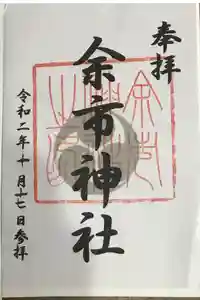 奉拝
余市神社
令和二年十月十七日参拝